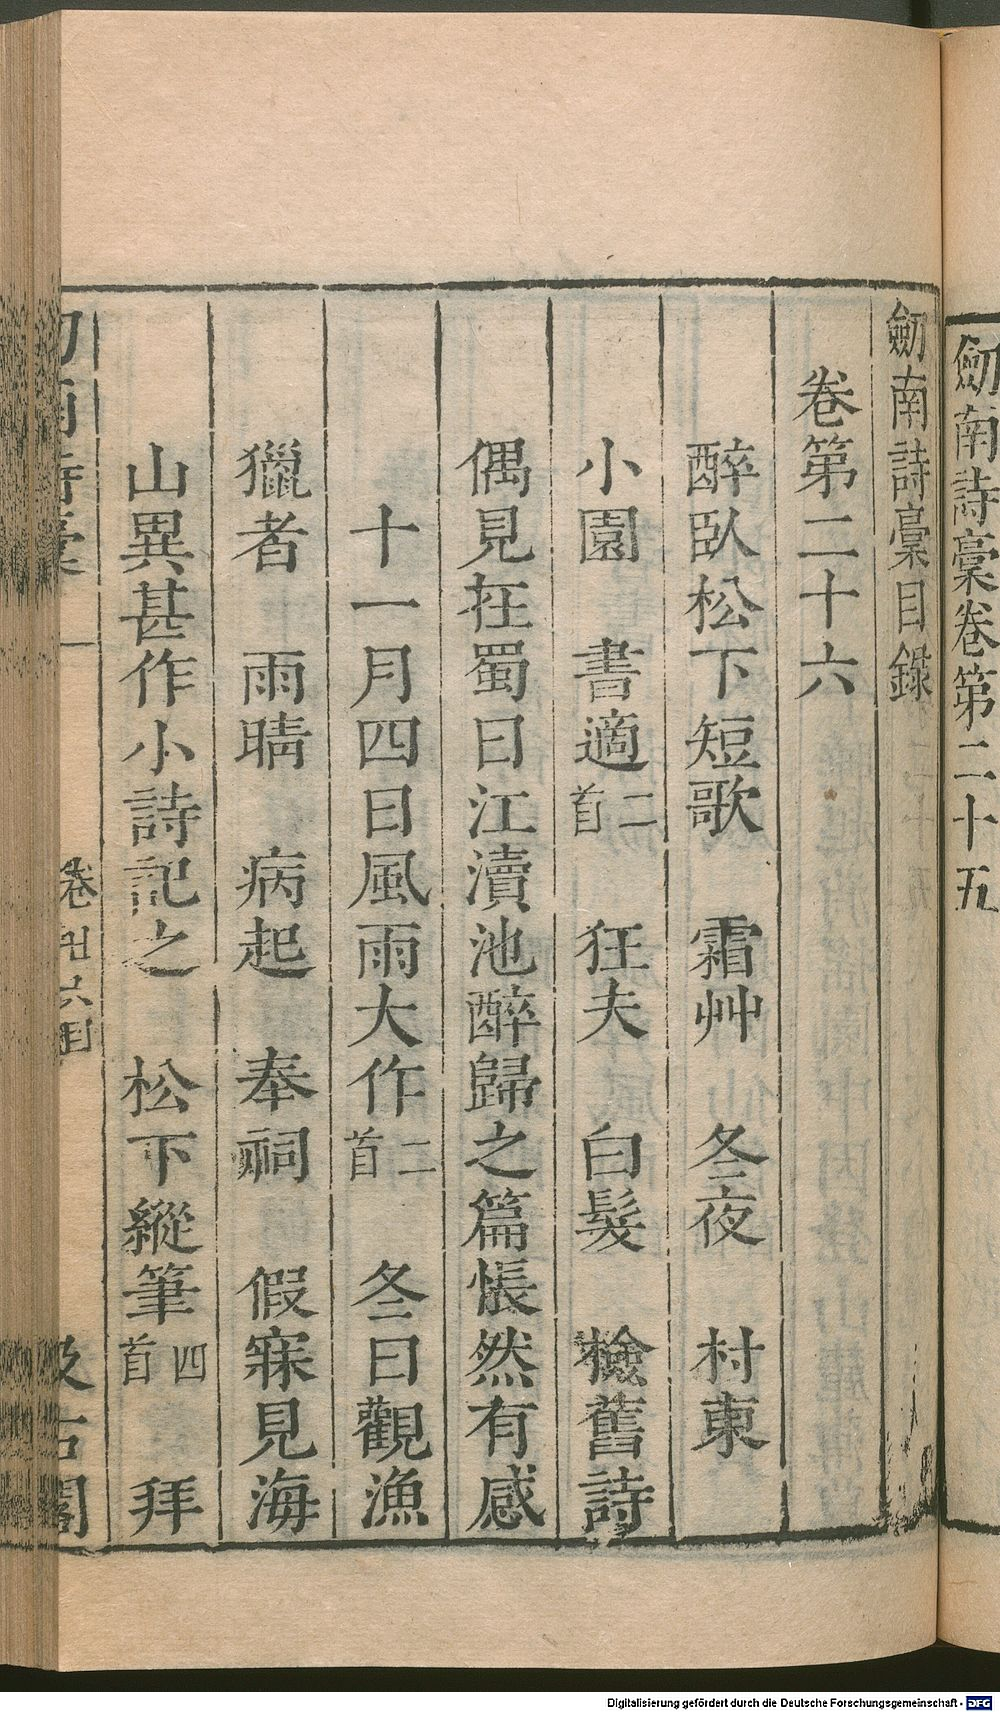 劒南詩稾卷第二十五
劒南詩稾目錄
卷第二十六
醉臥松下短歌　霜艸　冬夜　村東
小園　書適二首　狂夫　白髮　檢舊詩
偶見在蜀日江瀆池醉歸之篇悵然有感
十一月四日風雨大作二首　冬日觀漁
獵者　雨晴　病起　奉祠　假寐見海
山異甚作小詩記之　松下縱筆四首　拜
南詩稾
一
卷廿六目
汲古閣
Digitalisierung gefördert durch die Deutsche Forschungsgemeinschaft - DFG